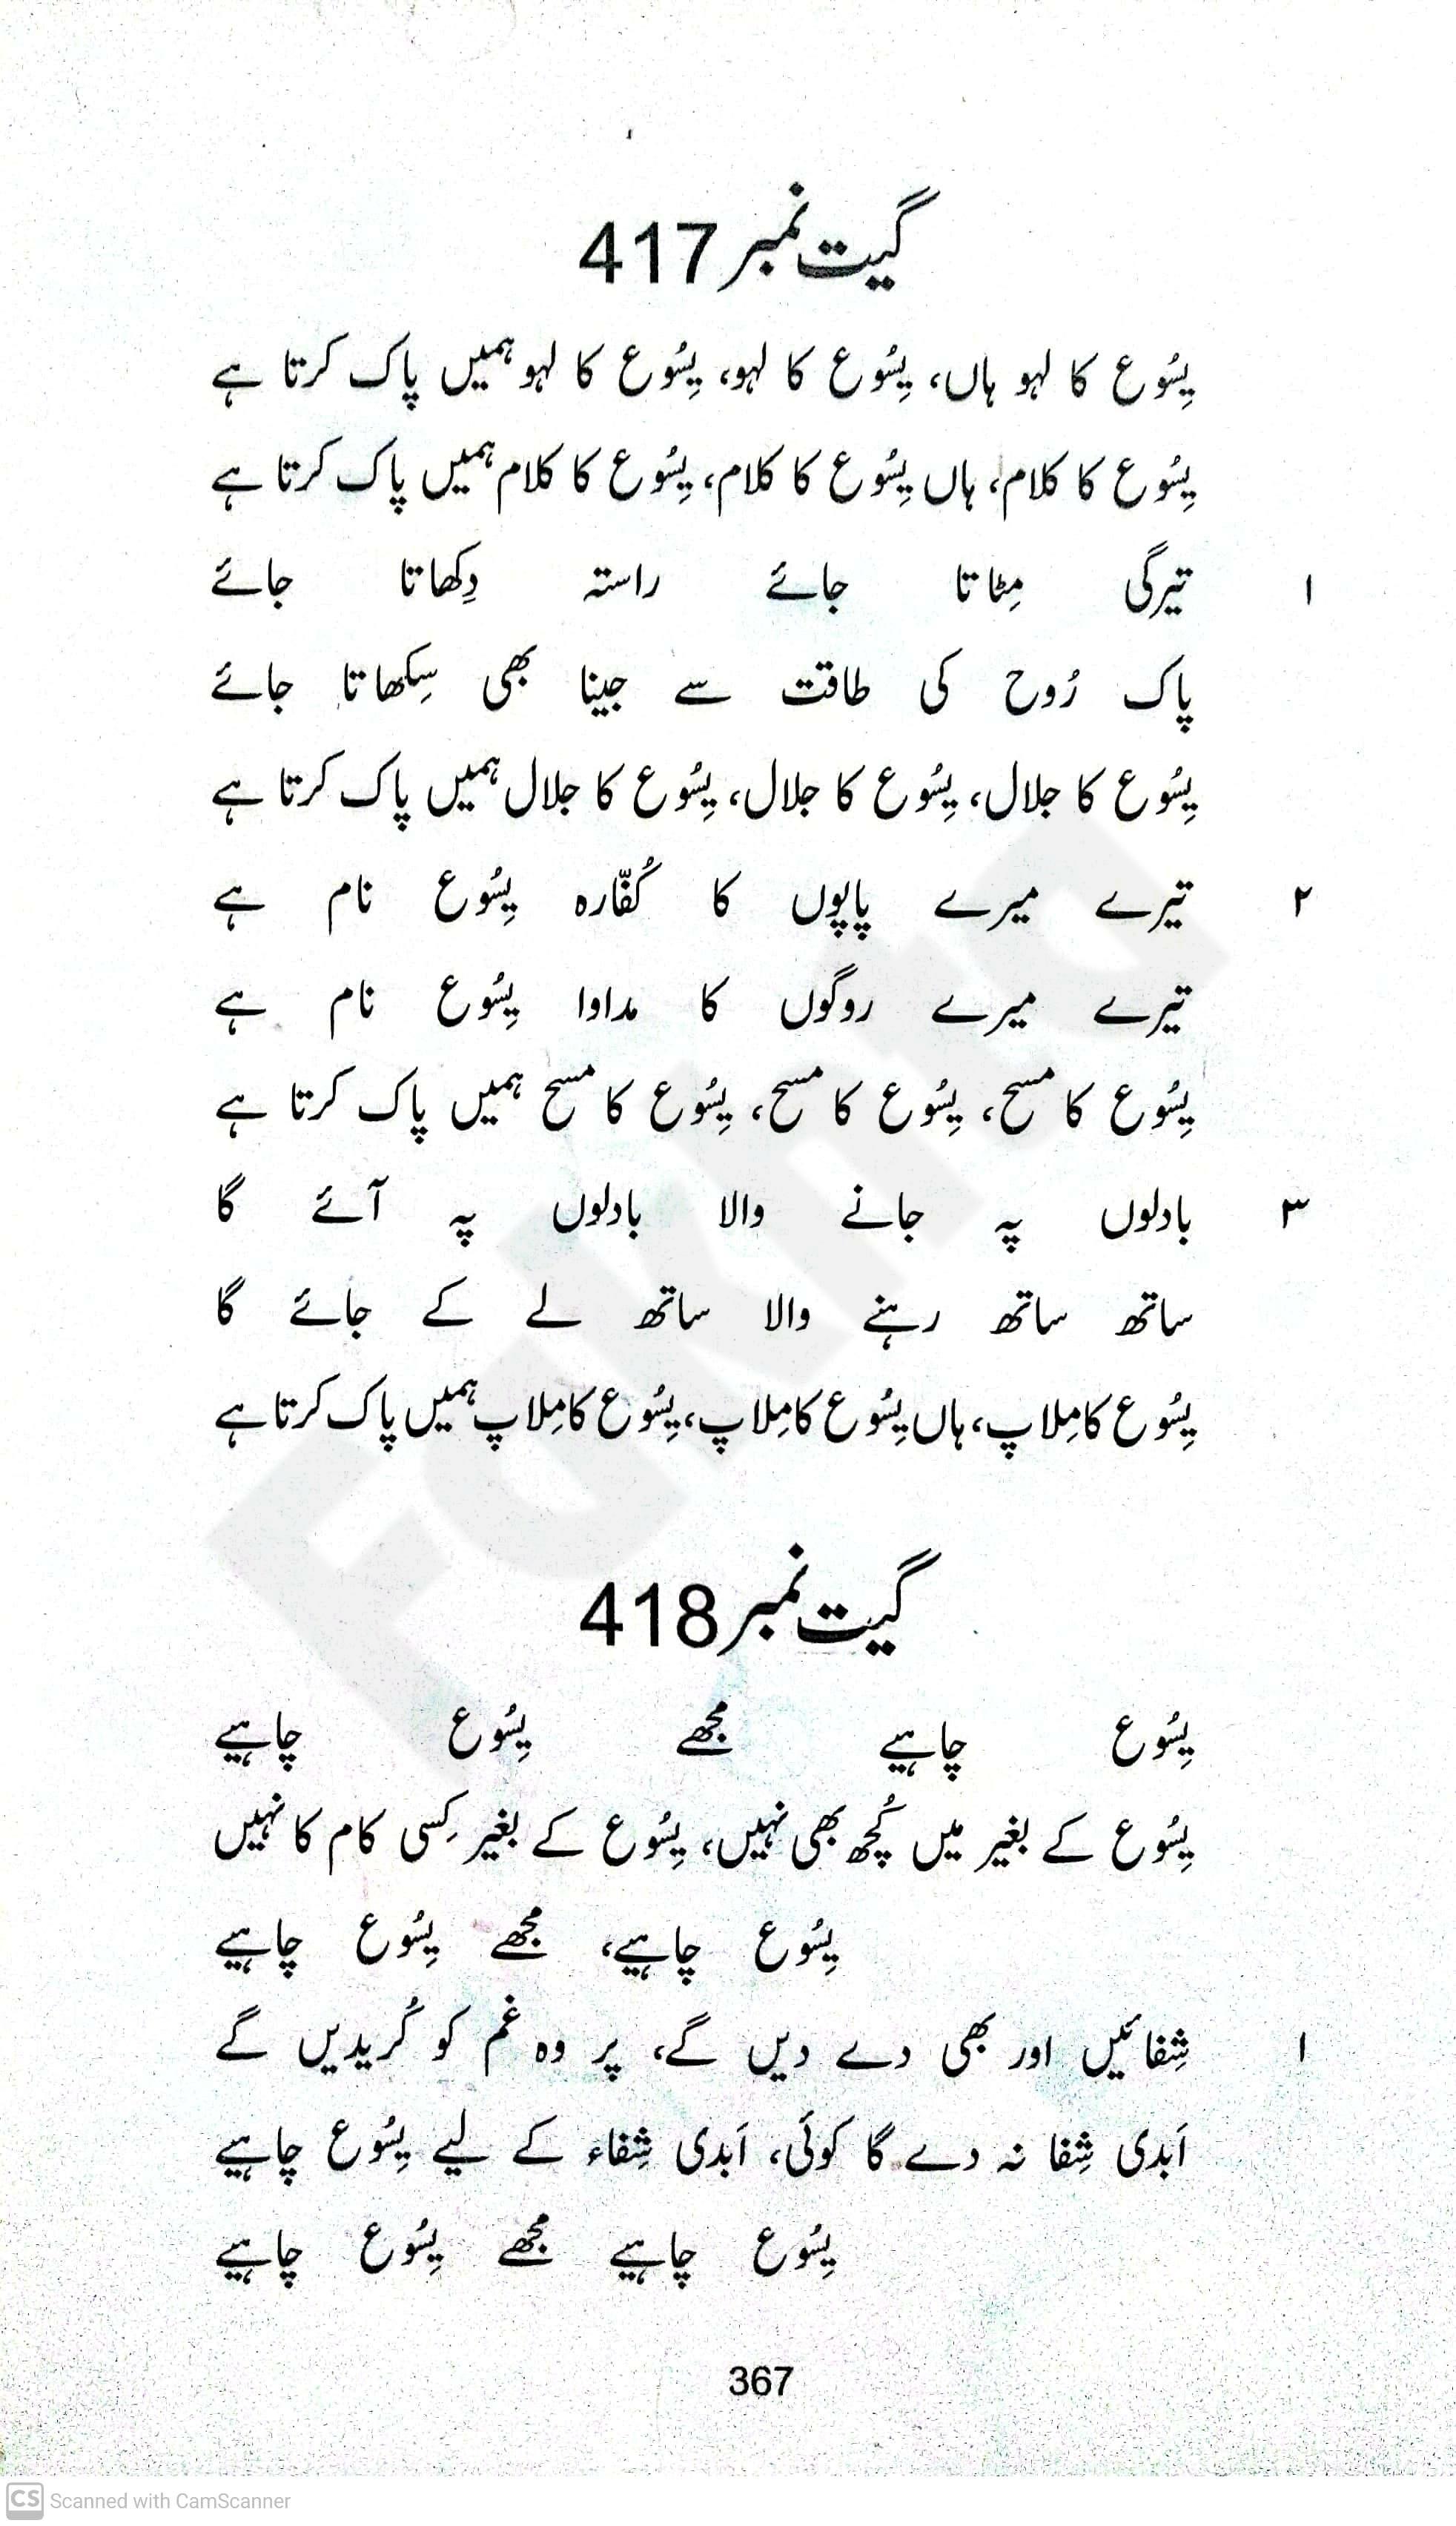 گیت نمبر 417
یِسُوع کا لہو ہاں، یِسُوع کا لہو، یِسُوع کا لہو ہمیں پاک کرتا ہے
یِسُوع کا کلام، ہاں یِسُوع کا کلام، یِسُوع کا کلام ہمیں پاک کرتا ہے
۱ تیرگی مِٹاتا جائے راستہ دِکھاتا جائے
پاک رُوح کی طاقت سے جینا بھی سِکھاتا جائے
یِسُوع کا جلال، یِسُوع کا جلال، یِسُوع کا جلال ہمیں پاک کرتا ہے
۲ تیرے میرے پاپوں کا کُفّارہ یِسُوع نام ہے
تیرے میرے روگوں کا مداوا یِسُوع نام ہے
یِسُوع کا مسح، یِسُوع کا مسح، یِسُوع کا مسح ہمیں پاک کرتا ہے
۳ بادلوں پہ جانے والا بادلوں پہ آئے گا
ساتھ ساتھ رہنے والا ساتھ لے کے جائے گا
یِسُوع کا مِلاپ، ہاں یِسُوع کا مِلاپ، یِسُوع کا مِلاپ ہمیں پاک کرتا ہے
گیت نمبر 418
یِسُوع چاہیے مجھے یِسُوع چاہیے
یِسُوع کے بغیر میں کُچھ بھی نہیں، یِسُوع کے بغیر کِسی کام کا نہیں
یِسُوع چاہیے، مجھے یِسُوع چاہیے
۱ شِفائیں اور بھی دے دیں گے، پر وہ غم کو کُریدیں گے
اَبدی شِفا نہ دے گا کوئی، اَبدی شِفاء کے لیے یِسُوع چاہیے
یِسُوع چاہیے مجھے یِسُوع چاہیے
367
CS Scanned with CamScanner